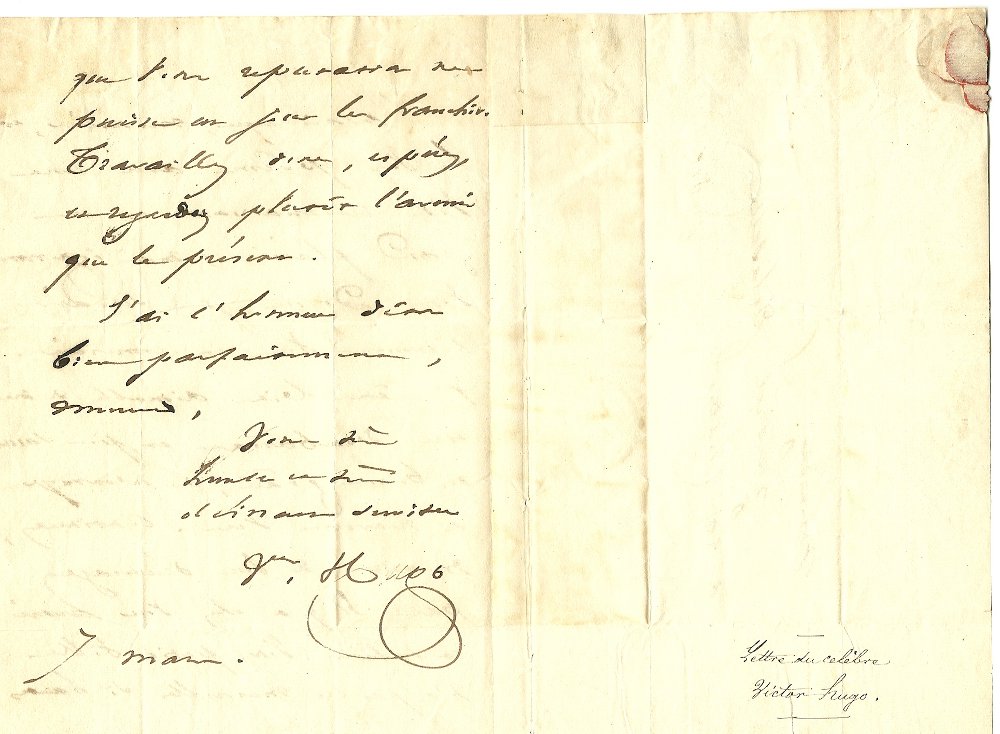 que votre réputation ne
puisse un jour les franchir.
Travaillez donc, espérez,
et regardez plutôt l'avenir
que le présent.
J'ai l'honneur d'être
bien parfaitement,
monsieur,
Votre très
humble et très
obéissant serviteur
Vor. Hugo
7 mars.
Lettre du celèbre
Victor Hugo.